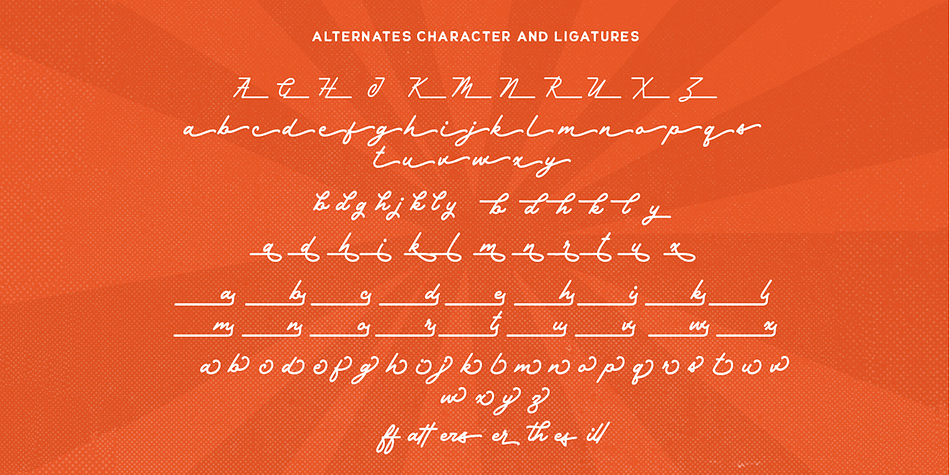 ALTERNATES CHARACTER AND LIGATURES
A G H I K M N R U X Z
a b c d e f g h i j k l m n o p q s
t u v w x y
b d g h j k l y b d h k l y
a d h i k l m n r t u x
a b c d e h i k l
m n o r t u v w x
a b c d e f g h i j k l m n o p q r s t u v
w x y z
ff att ers er th es ill